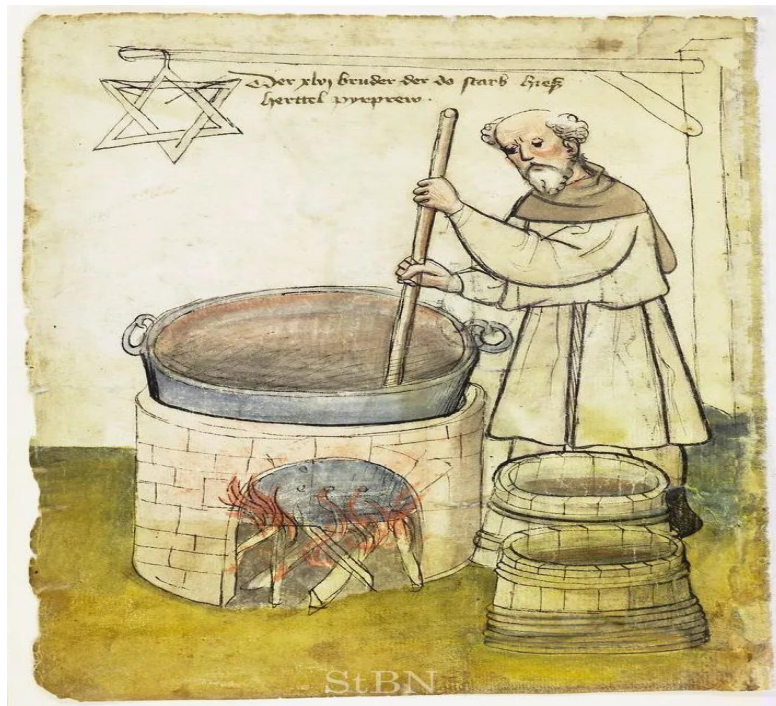 Der xlvi bruder der do starb hieß
herttel pyrprew .
StBN